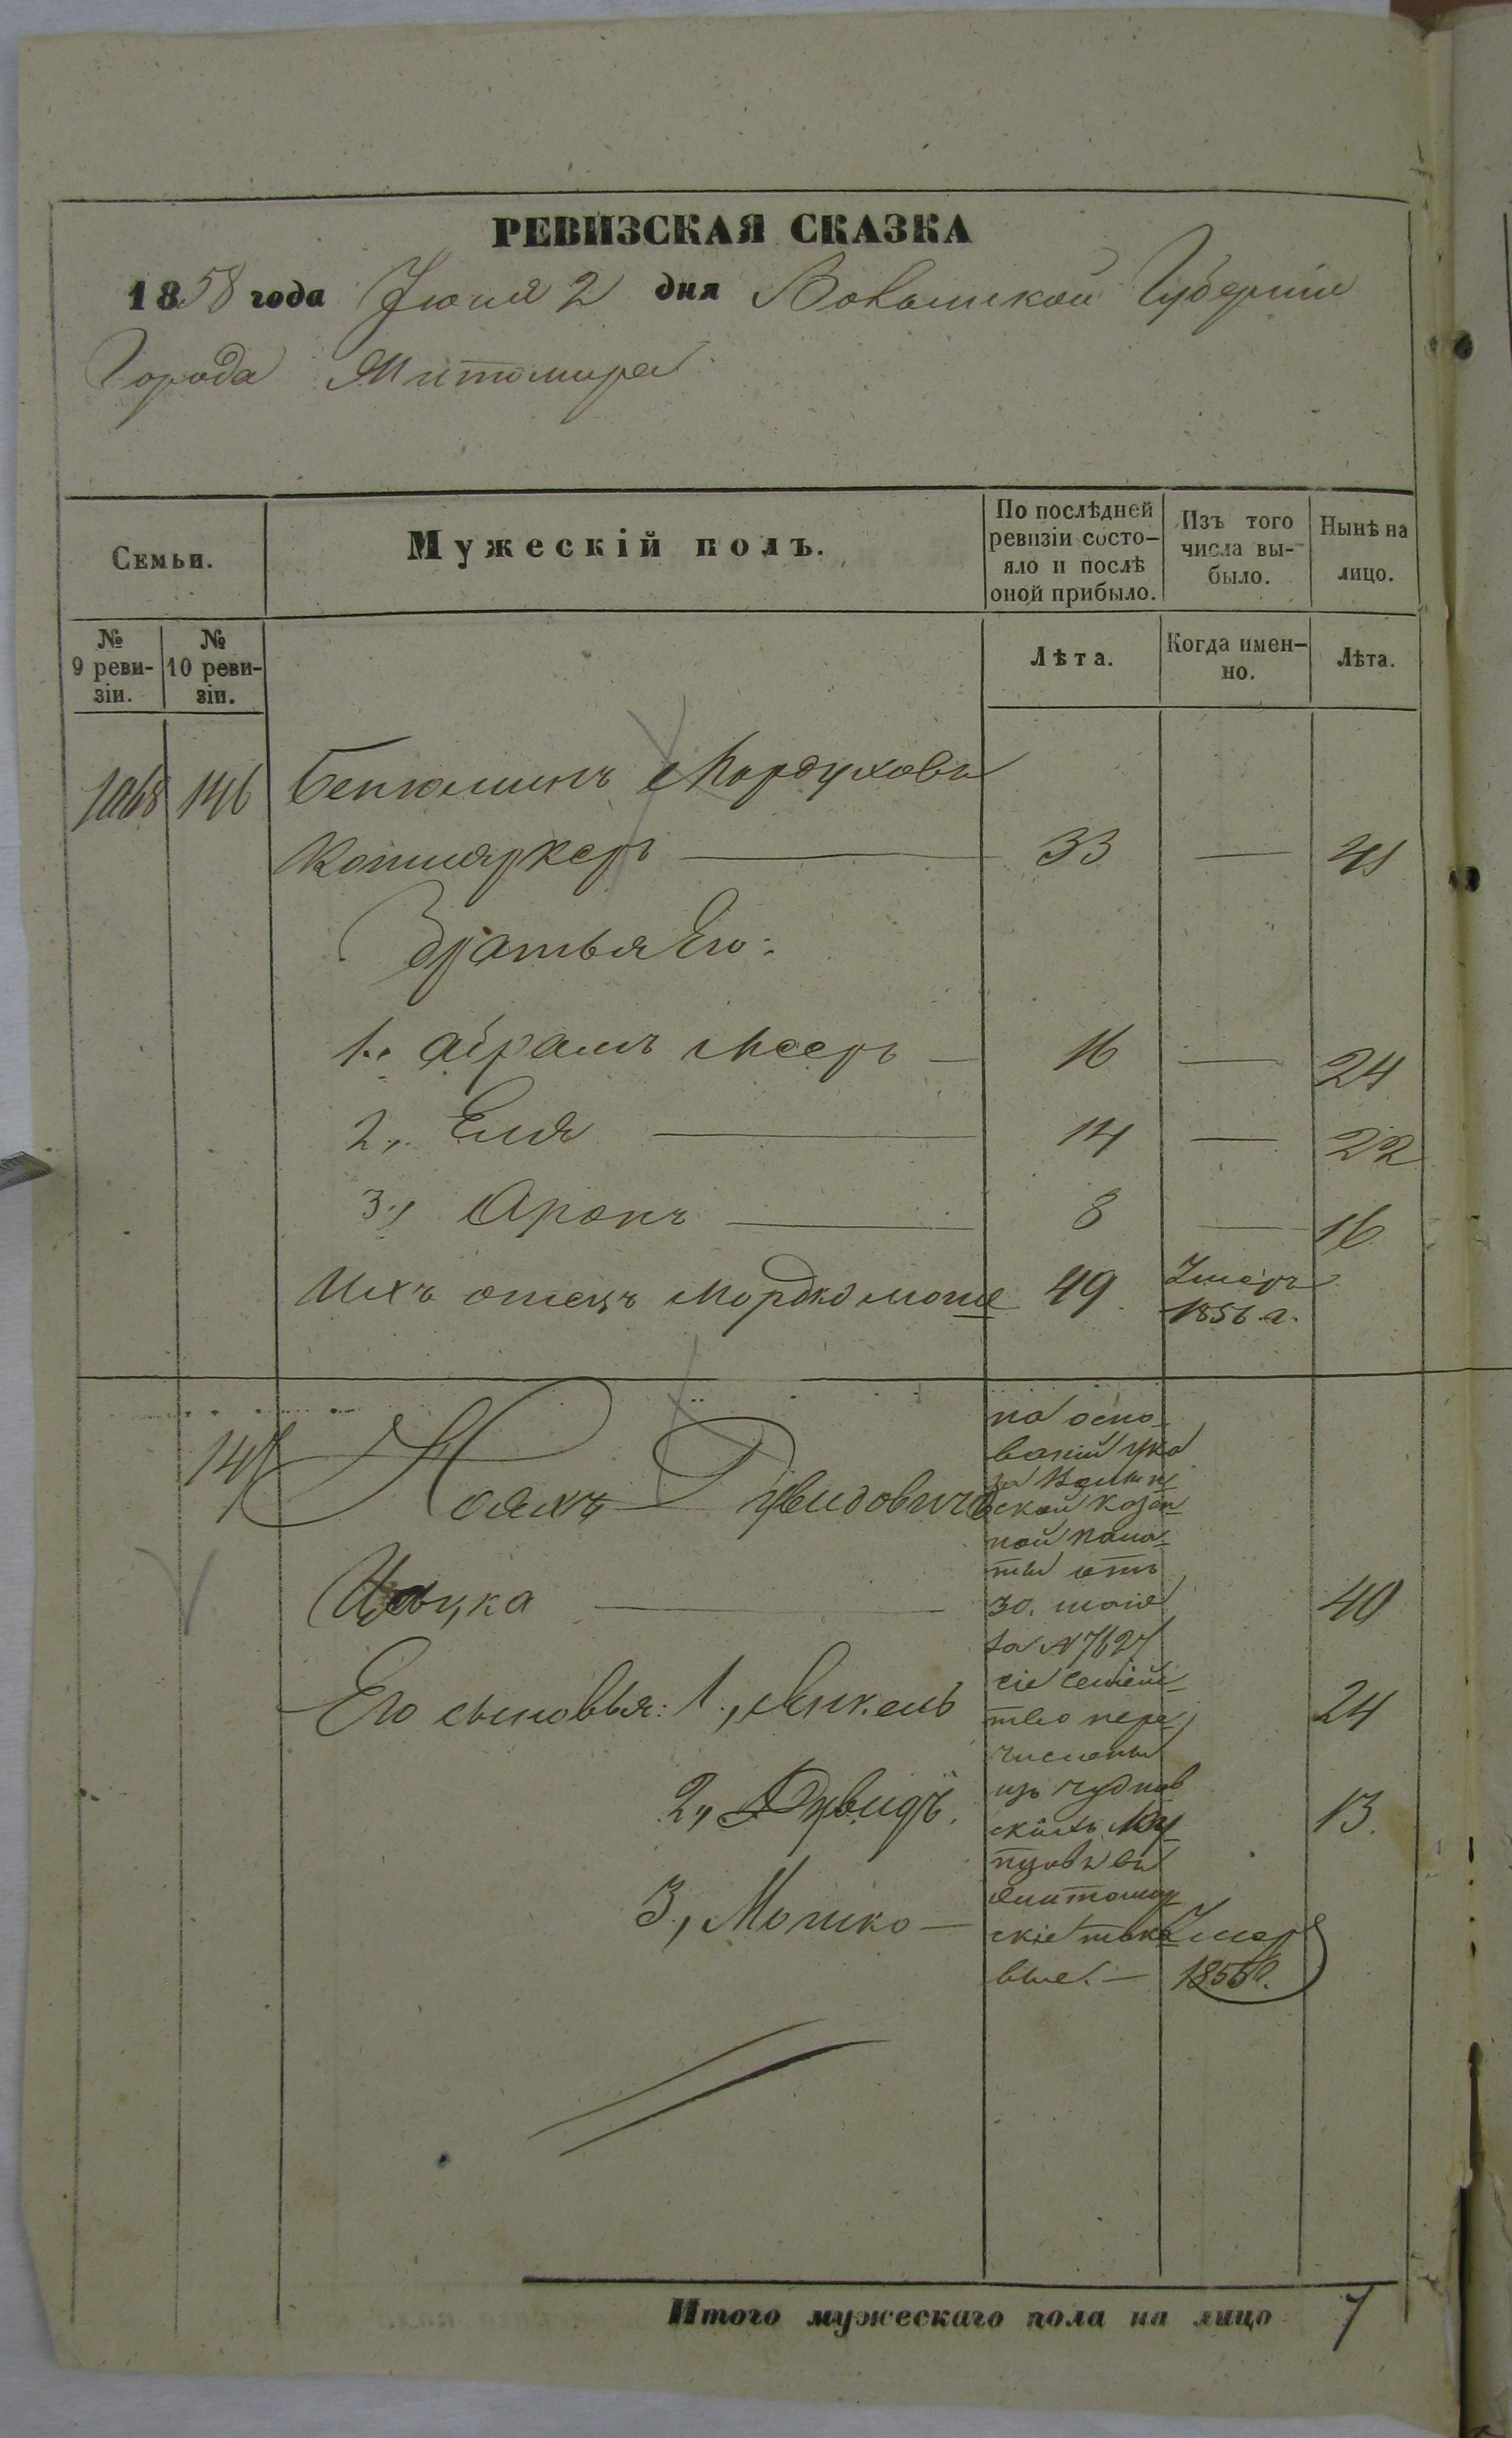 РЕВИЗСКАЯ СКАЗКА
1858 года Июня 2 дня Волынской Губернiи
Города Житомира
Семьи.
Мужескiй полъ.
По послѣдней ревизiи состо-
яло и послѣ
оной прибыло.
Изъ того
числа вы-
было.
Нынѣ на
лицо.
№
9 реви-
зiи.
№
10 реви-
зiи.
Лѣта.
Когда имен-
но.
Лѣта.
1068 146 Беніоминъ Мордуховъ
33 — 41
Братья Его:
1. Абрамъ Мееръ — 16 — 24
2. Еля — 14 — 22
3. Аронъ — 8 — 16
Ихъ отецъ Мордко 49 Умеръ
1856 г.
на осно-
ванiи ука
за Волын
ской казен
ной пала-
ты отъ
30. маiя
за № 7627
сiе семей-
тво пере
числены
изъ чуднов
скихъ Ку
пцовъ въ
житомир
скiе тако
вые. —
Ноахъ Дувидовичъ
Ицика — 40
Его сыновья: 1, Янкель 24
2, Дувидъ. 13.
3, Мошко — Умер
1855 г.
Итого мужескаго пола на лицо 7